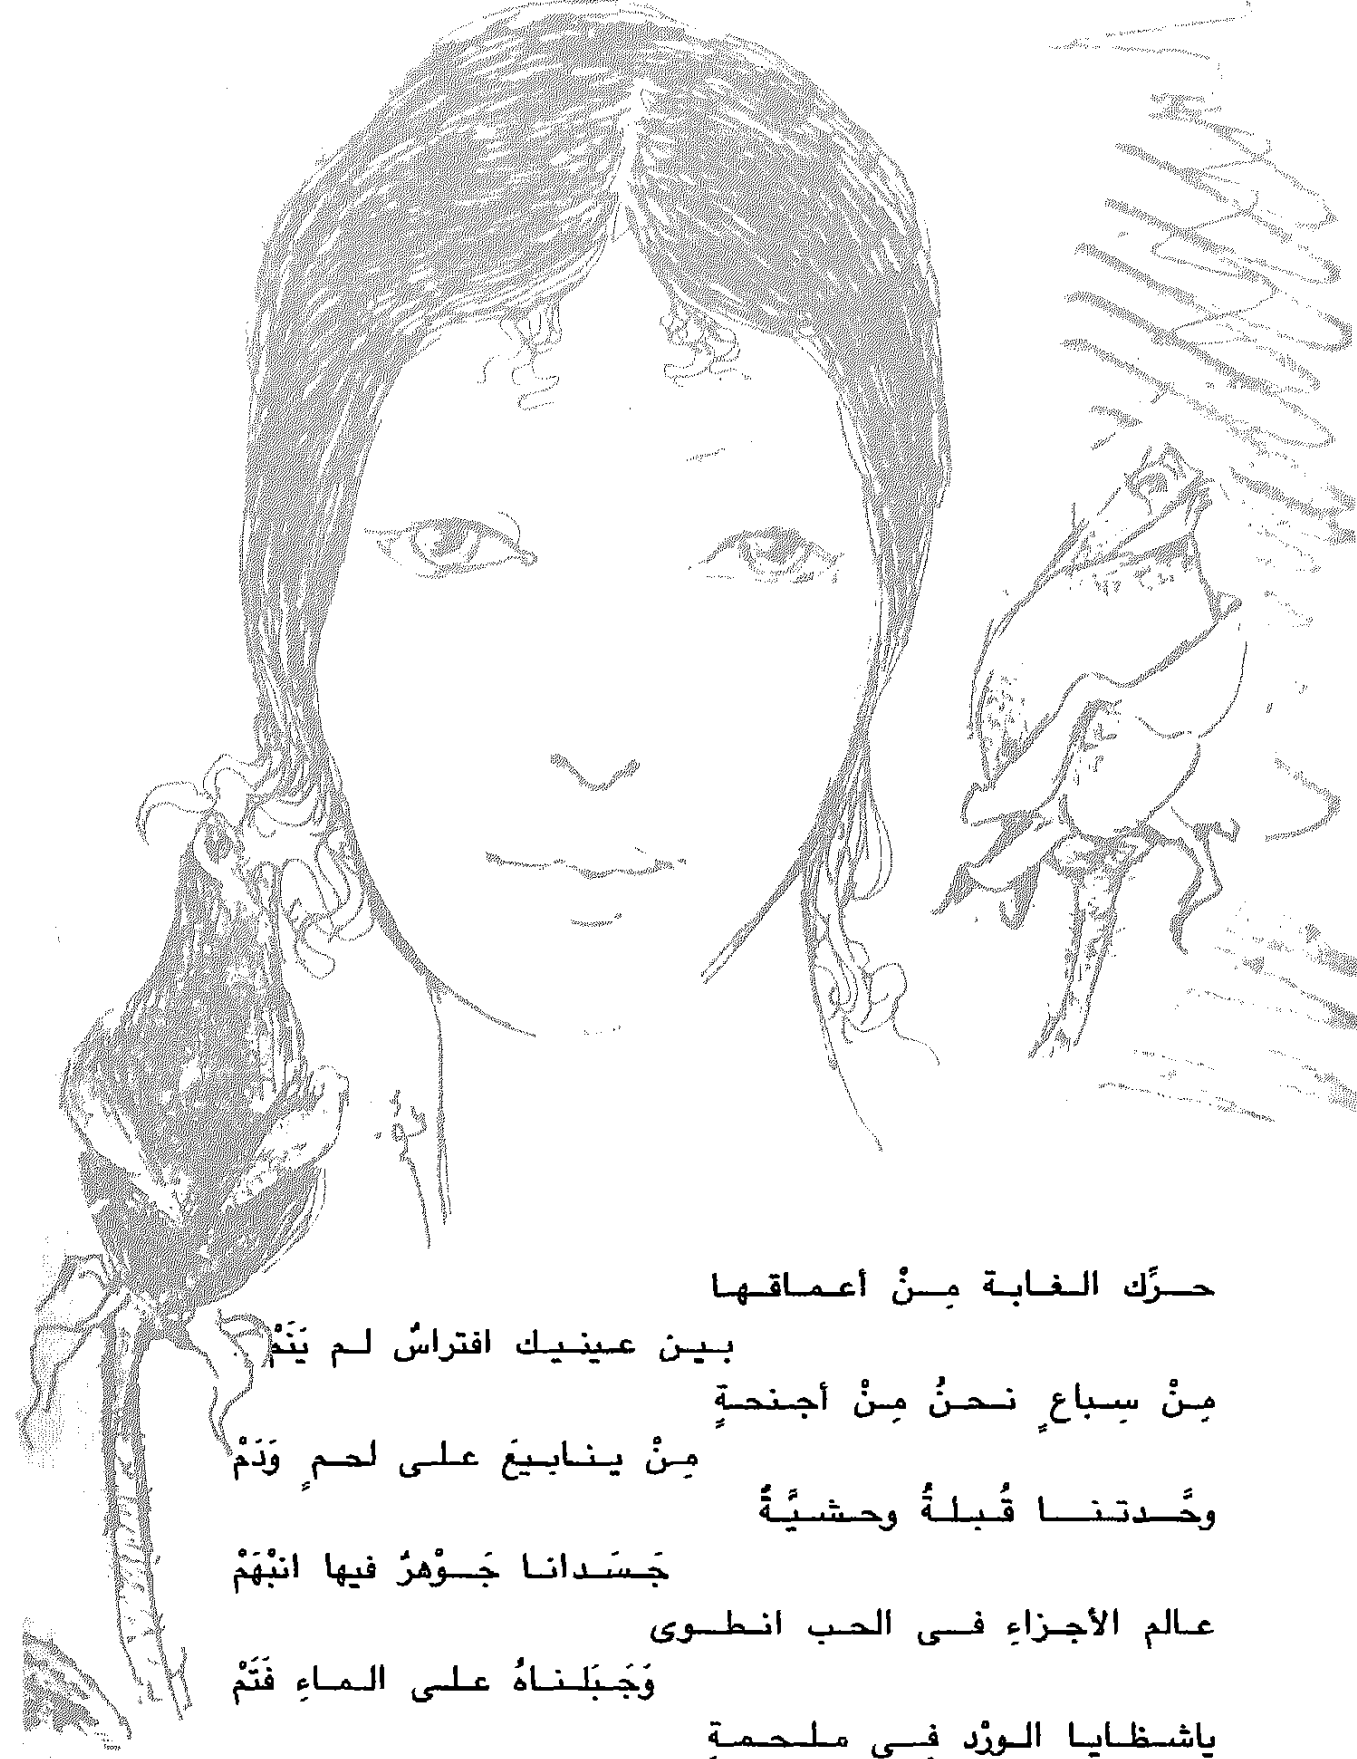 حرِّك الغابة مِنْ أعماقها
بين عينيك افتراسٌ لم يَنَمْ
مِنْ سِباعٍ نحنُ مِنْ أجنحةٍ
مِنْ ينابيعَ على لحمٍ وَدَمْ
وحَّدتنا قُبلةُ وحشيَّةٌ
جَسَدانا جَوْهرٌ فيها انبْهَمْ
عالم الأجزاءِ فى الحب انطوى
وَجَبَلناهُ على الماءِ فَتَمْ
ياشظايا الورْد فِى ملحمةٍ